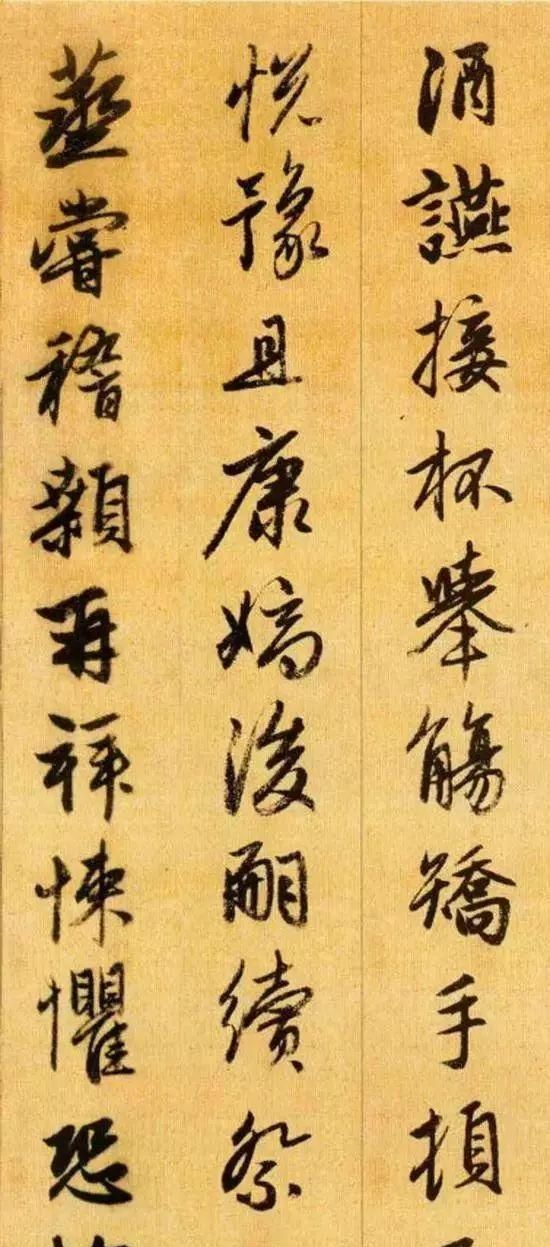 酒讌接杯舉觴矯手頓
悅豫且康嫡後嗣續祭
蒸嘗稽顙再拜悚懼恐